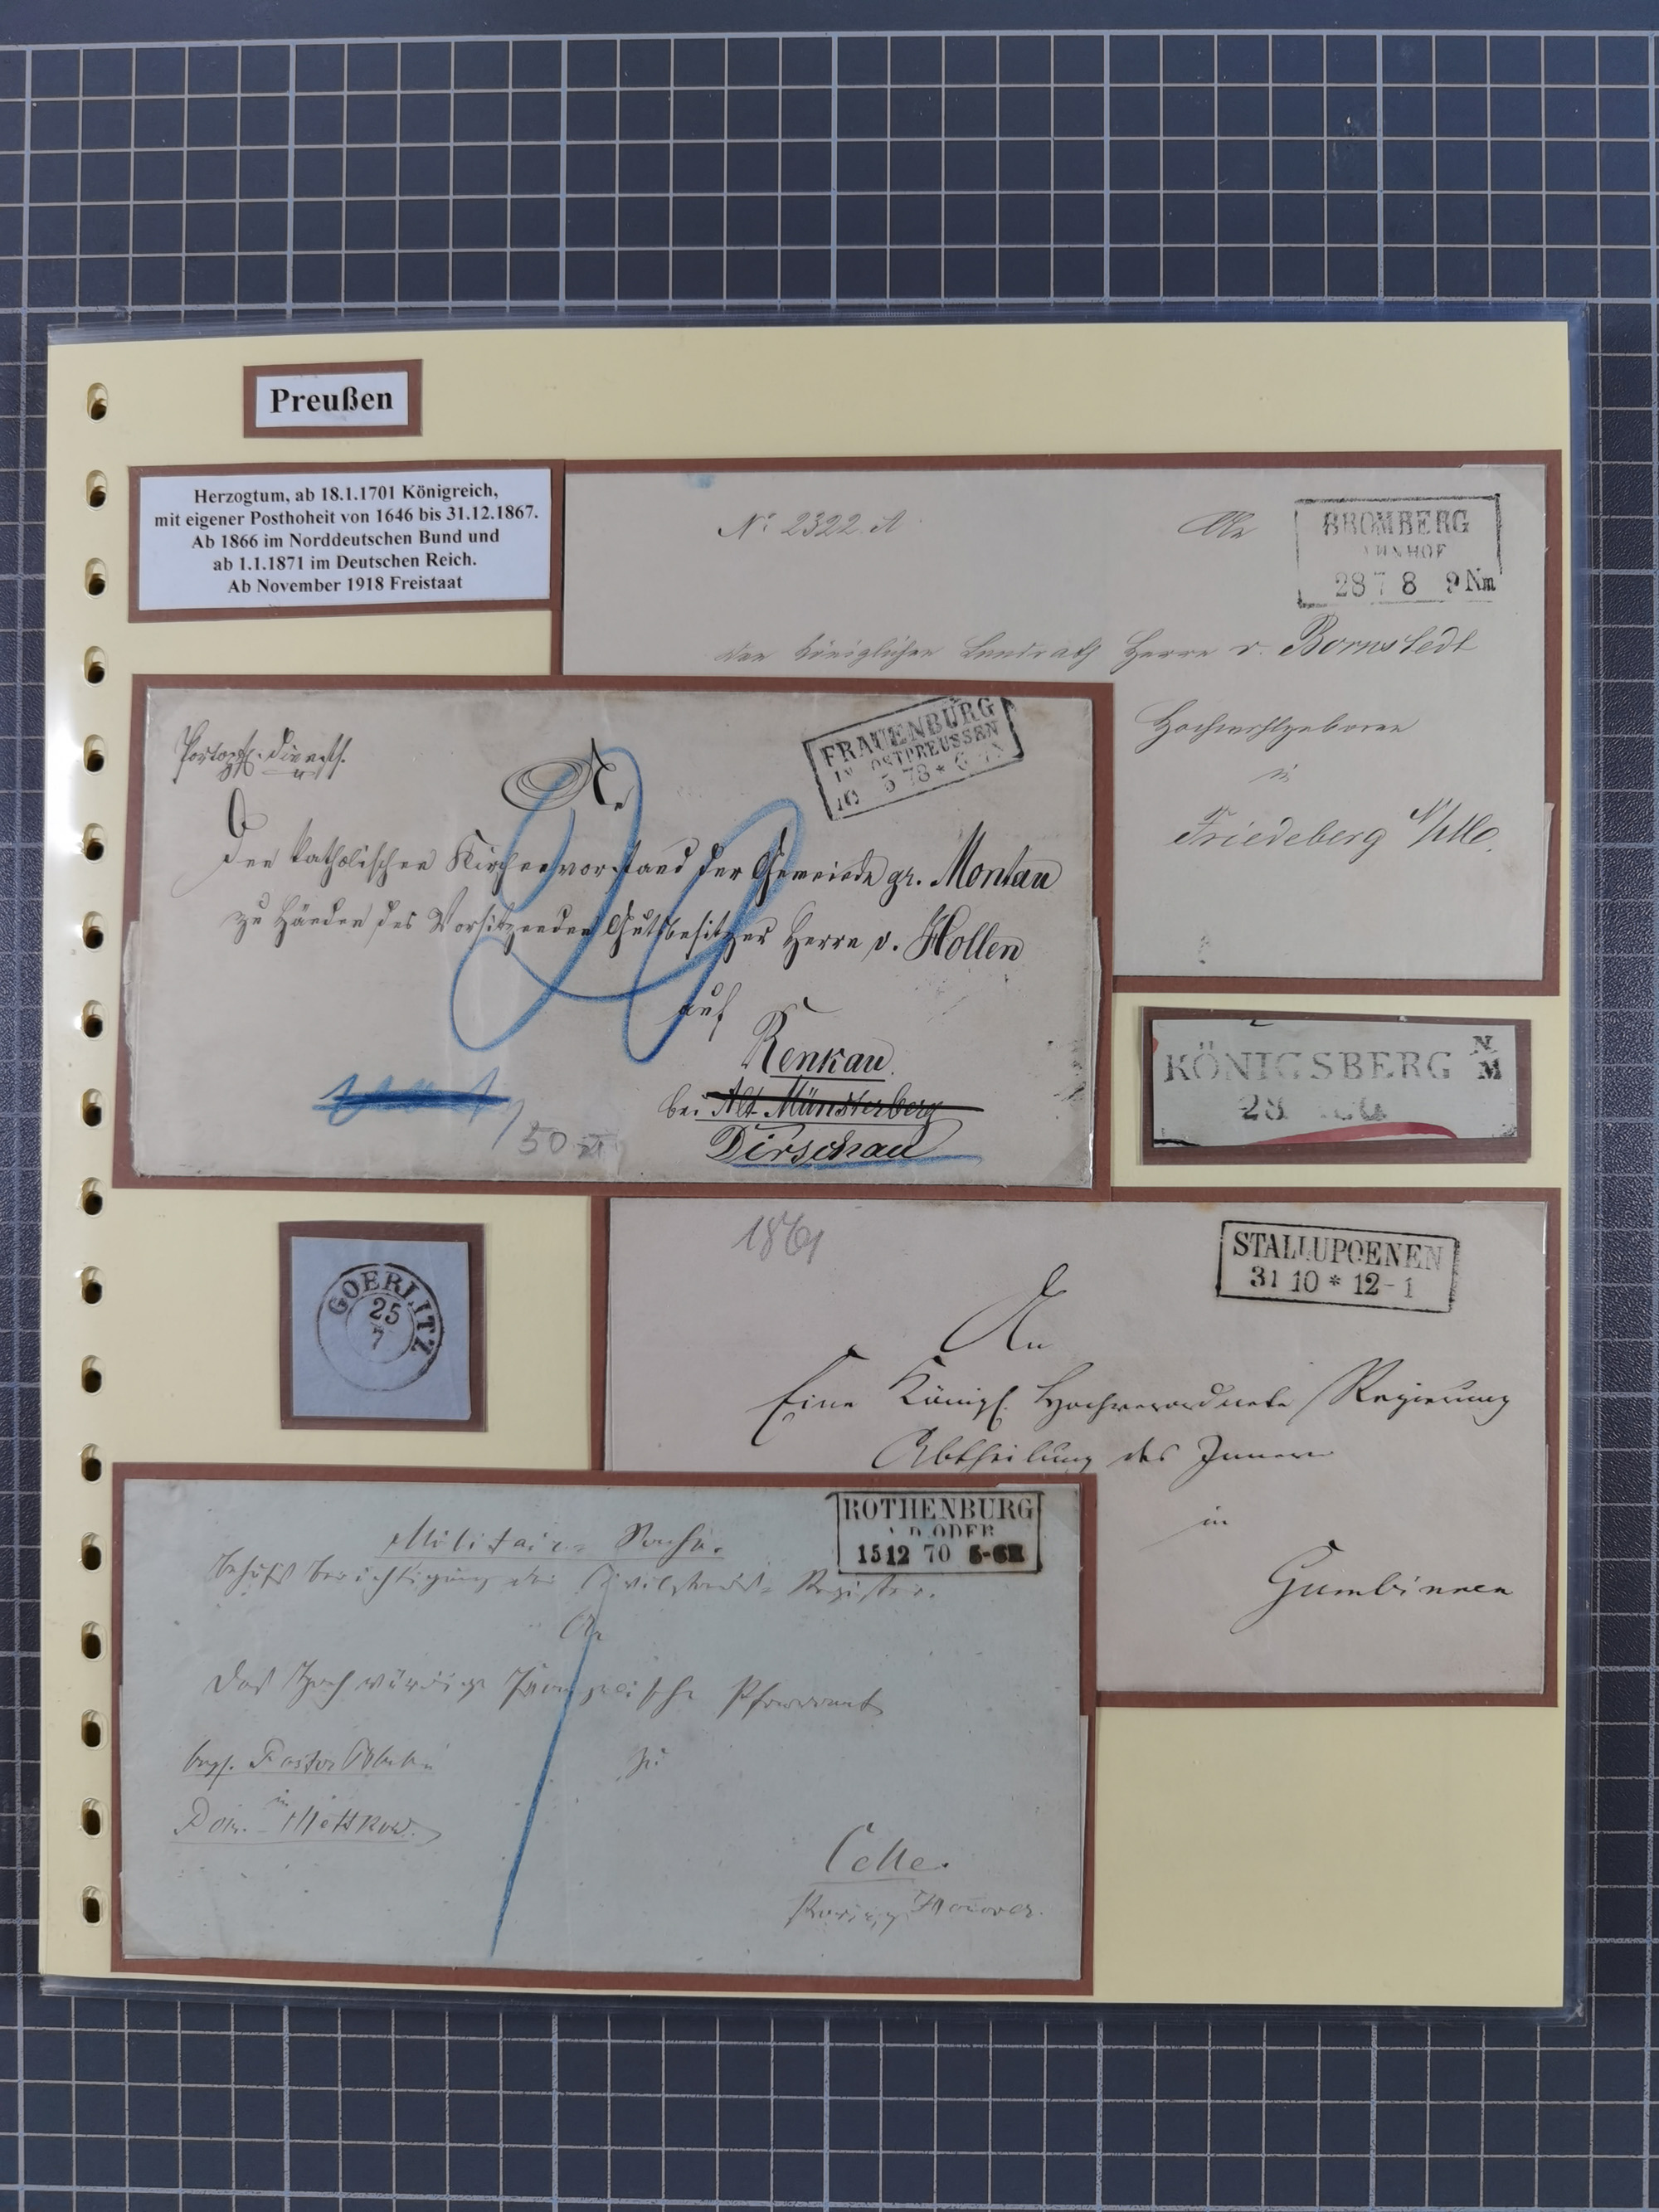 Preußen
Herzogtum, ab 18.1.1701 Königreich,
mit eigener Posthoheit von 1646 bis 31.12.1867.
Ab 1866 im Norddeutschen Bund und
ab 1.1.1871 im Deutschen Reich.
Ab November 1918 Freistaat
No 2322 A
An
BROMBERG
28 7 8 9 Nm
den Königlichen Landrath Herrn v. Bornstedt
Hochwohlgeboren
in
Friedeberg N/M
FRAUENBURG
IN OSTPREUSSEN
5 78 * 6
An
Den katholischen Kirchenvorstand der Gemeinde gr. Montau
zu Händen des Vorsitzenden Gutsbesitzer Herrn v. Hollen
auf
Renkau
bei Alt-Münsterberg
Dirschau
50
KÖNIGSBERG N/M
GOERLITZ
25
7
1861
STALLUPOENEN
31 10 * 12-1
An
Eine Königl. Hochverordnete Regierung
Abtheilung des Innern
in
Gumbinnen
ROTHENBURG
A D ODER
15 12 70 5-6
Militair-Sache.
behufs Berichtigung der Civilstands-Register.
An
Das Hochwürdige Französische Pfarramt
zu
Celle.
Provinz Hanover.